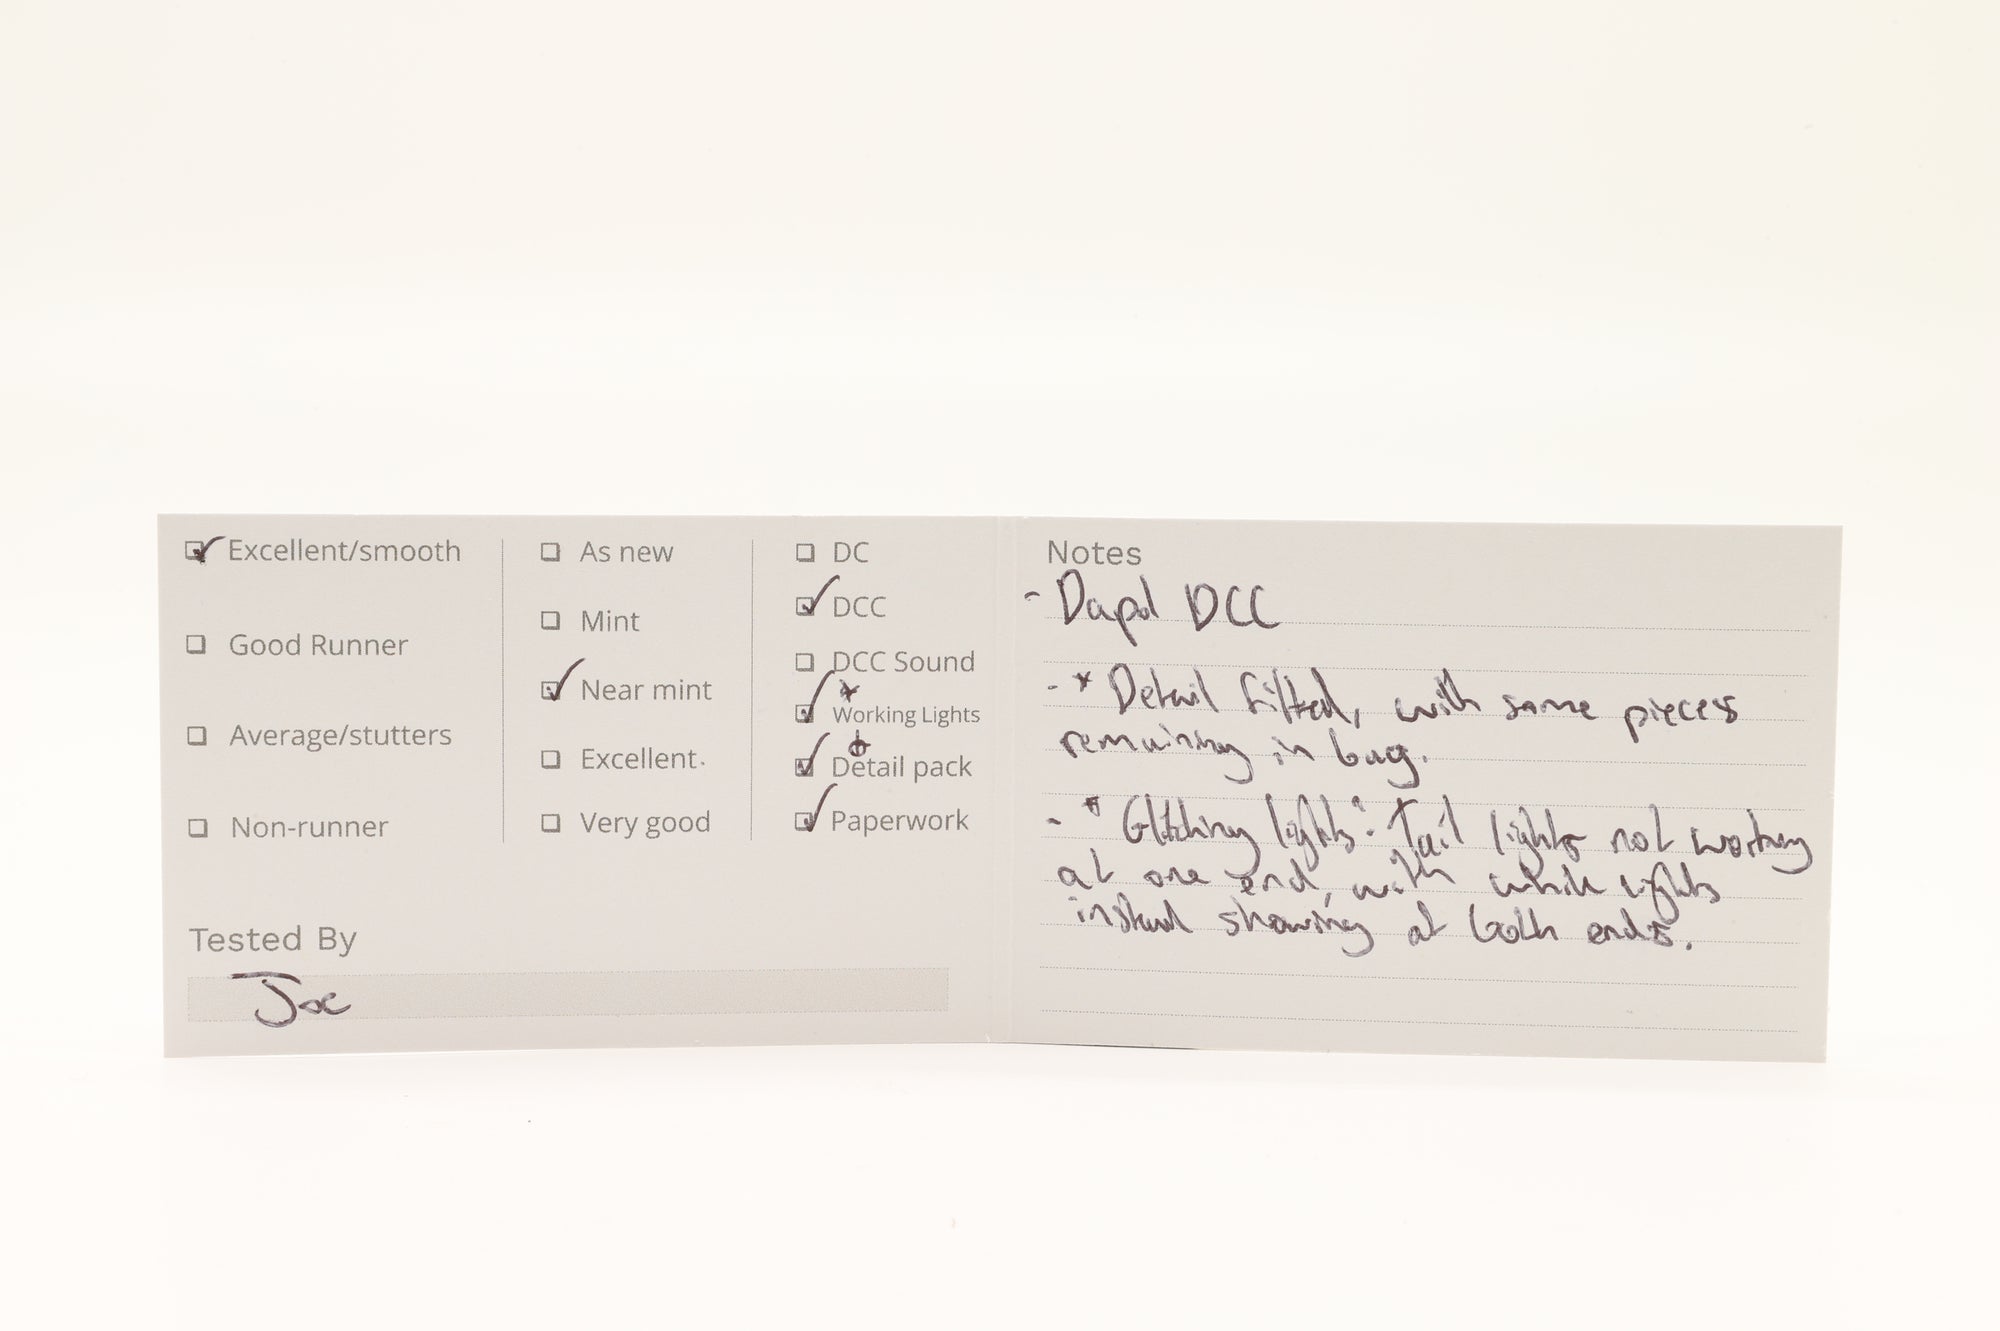 Excellent/smooth
Good Runner
Average/stutters
Non-runner
As new
Mint
Near mint
Excellent
Very good
DC
DCC
DCC Sound
*
Working Lights
Detail pack
Paperwork
Tested By
Joe
Notes
- Dapol DCC
- * Detail fitted, with some pieces
remaining in bag.
- * Glitching lights: Tail lights not working
at one end, with white lights
instead showing at both ends.